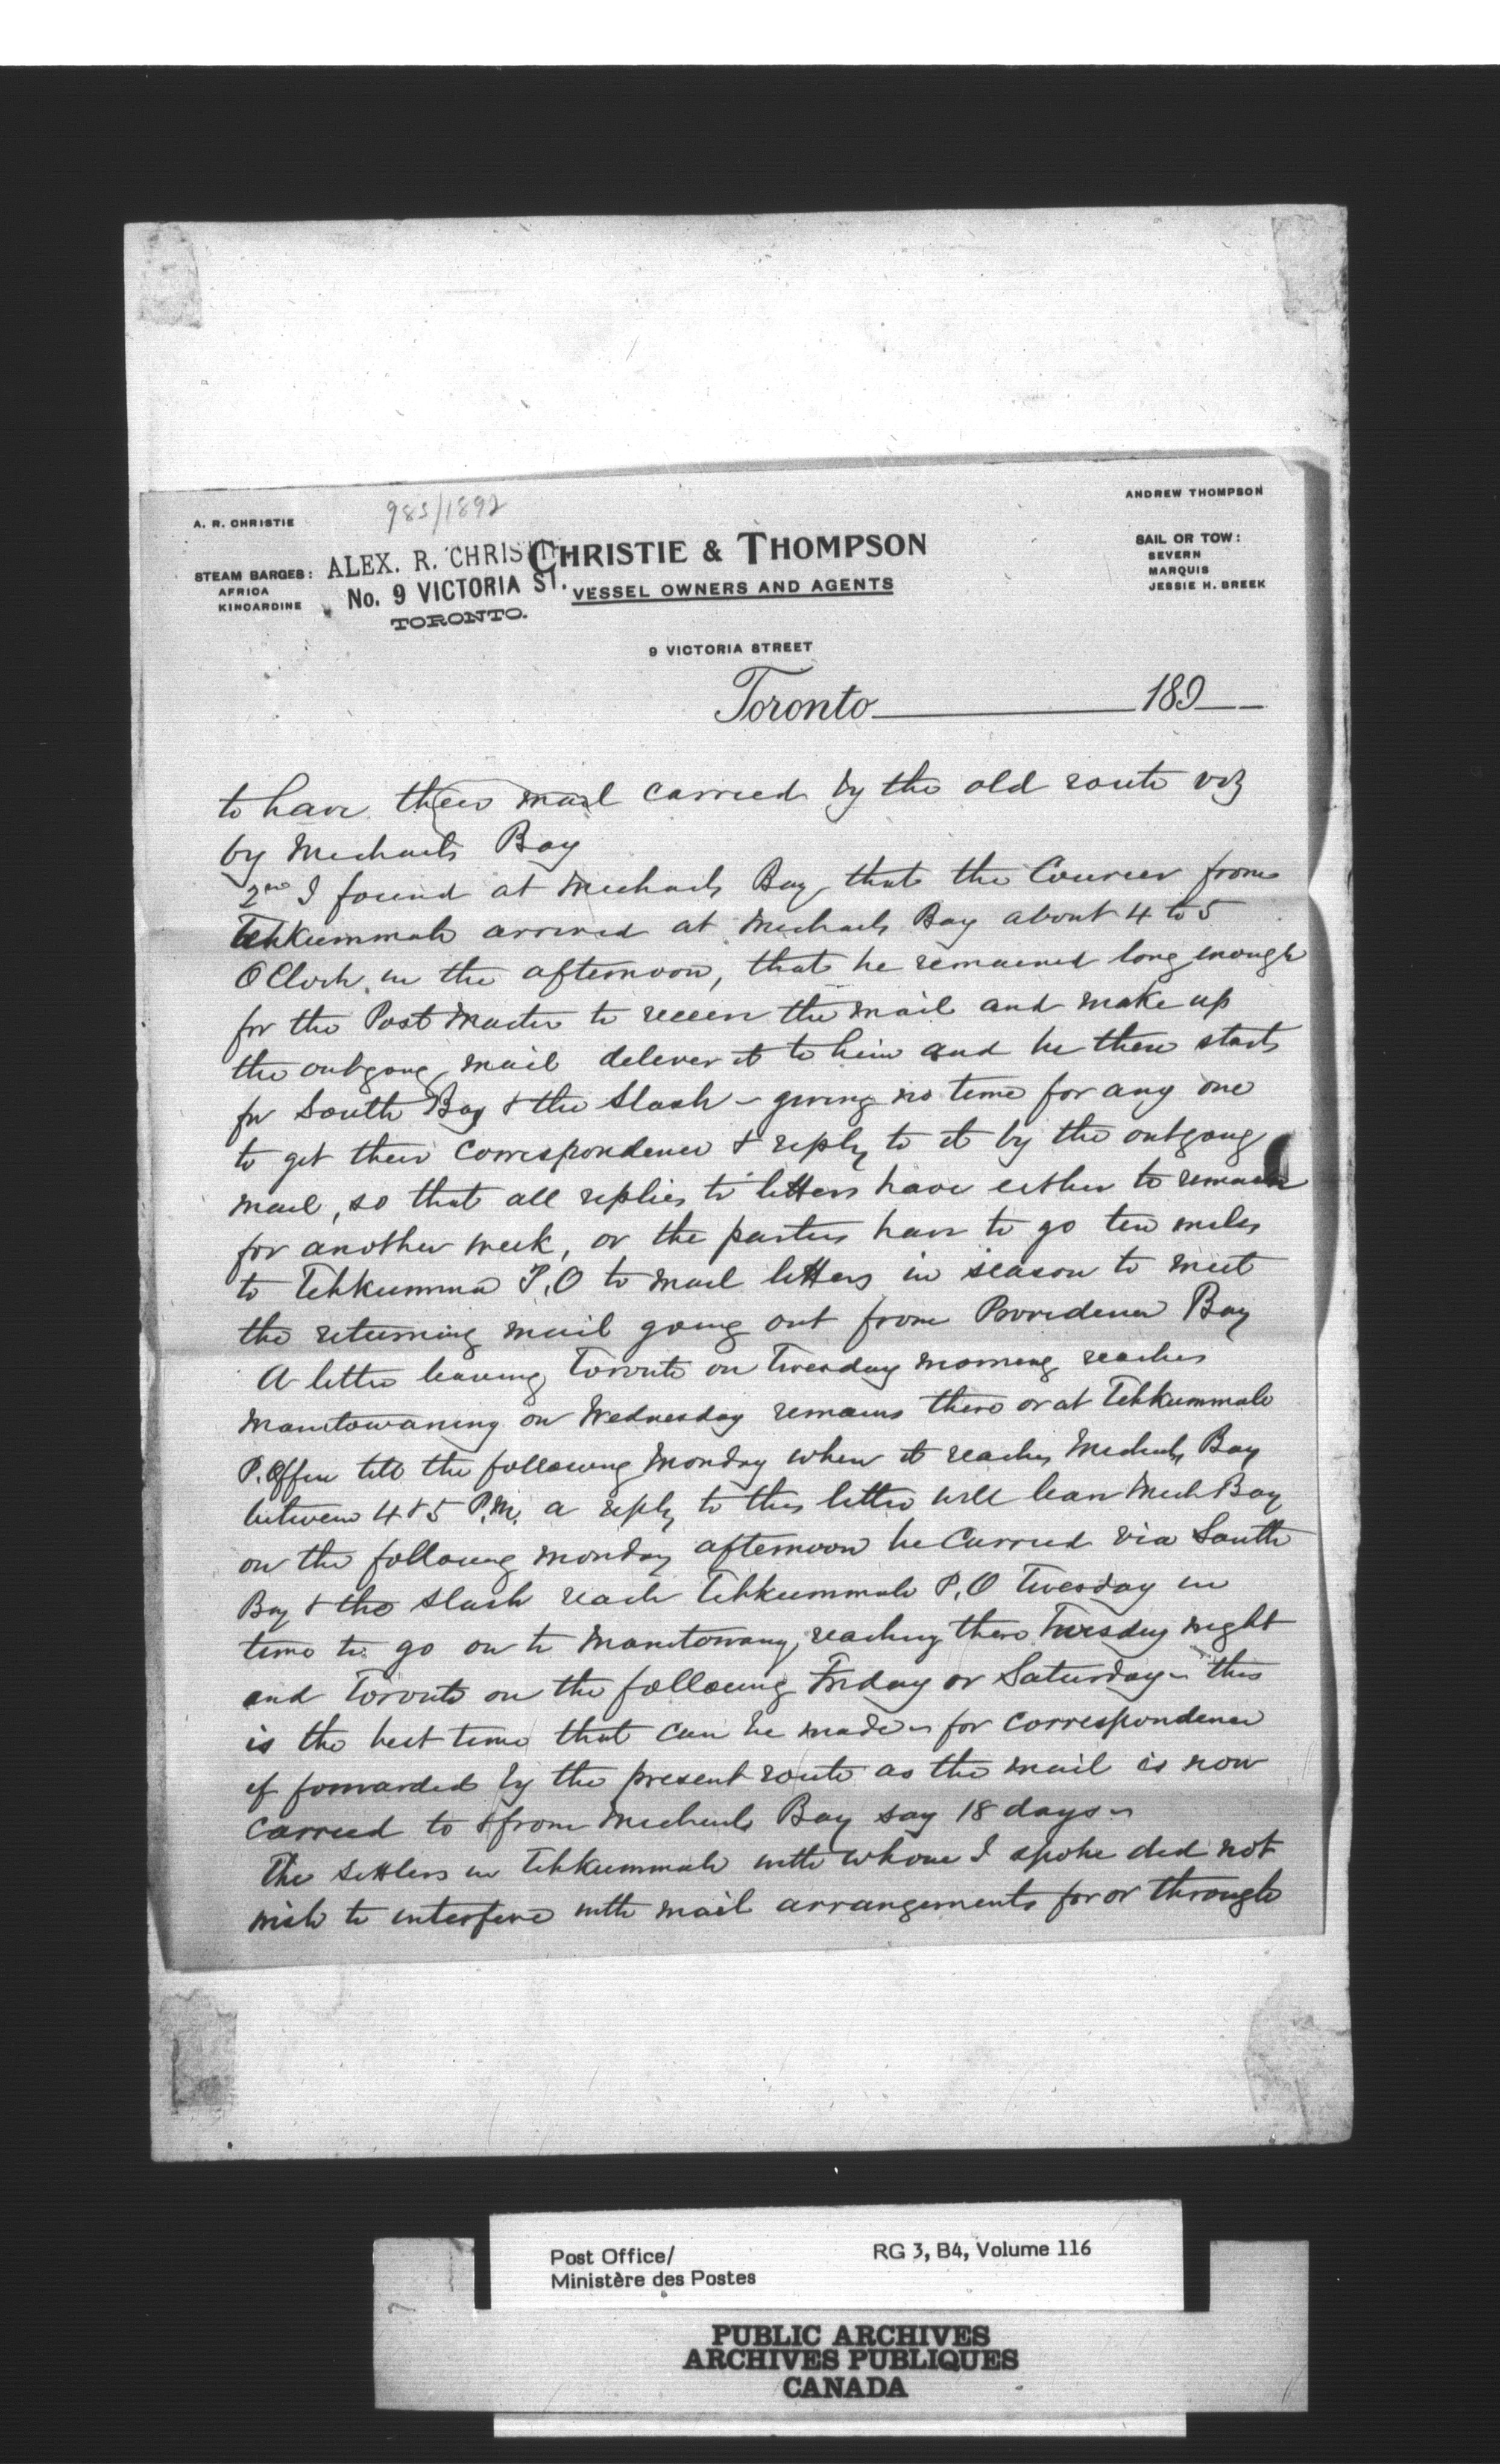 985/1892
A. R. CHRISTIE
ANDREW THOMPSON
STEAM BARGES:
AFRICA
KINCARDINE
ALEX. R. CHRISTIE
No. 9 VICTORIA ST.
TORONTO.
CHRISTIE & THOMPSON
VESSEL OWNERS AND AGENTS
SAIL OR TOW:
SEVERN
MARQUIS
JESSIE H. BREEK
9 VICTORIA STREET
Toronto 189
to have their mail carried by the old route viz
by Michaels Bay
2nd I found at Michaels Bay that the Courier from
Tehkummah arrived at Michaels Bay about 4 to 5
OClock in the afternoon, that he remained long enough
for the Post Master to receive the mail and make up
the outgoing mail deliver it to him and he then starts
for South Bay & the Slash - giving no time for any one
to get their Correspondence & reply to it by the outgoing
mail, so that all replies to letters have either to remain
for another week, or the parties have to go ten miles
to Tehkumma P.O to mail letters in season to meet
the returning mail going out from Providence Bay
A letter leaving Toronto on Tuesday morning reaches
Manitowaning on Wednesday remains there or at Tehkummah
P. Office till the following Monday when it reaches Michaels Bay
between 4 & 5 P.M. a reply to this letter will leave Mich Bay
on the following Monday afternoon be Carried via South
Bay & the Slash reach Tehkummah P.O Tuesday in
time to go on to Manitowang, reaching there Tuesday night
and Toronto on the following Friday or Saturday - this
is the best time that can be made - for correspondence
if forwarded by the present route as the mail is now
carried to & from Michaels Bay say 18 days -
The Settlers in Tehkummah with whom I spoke did not
wish to interfere with mail arrangements for or through
Post Office/
Ministère des Postes
RG 3, B4, Volume 116
PUBLIC ARCHIVES
ARCHIVES PUBLIQUES
CANADA